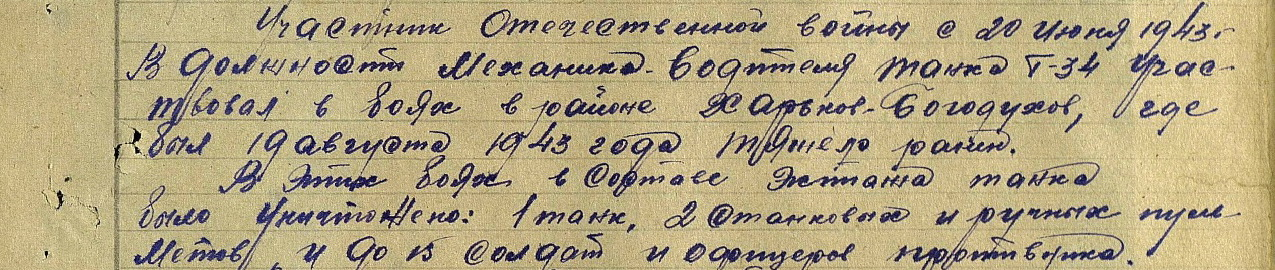 Участник Отечественной войны с 20 июня 1943 г.
В должности Механика-водителя танка Т-34 учас-
твовал в боях в районе Харьков-Богодухов, где
был 19 августа 1943 года тяжело ранен.
В этих боях в составе экипажа танка
было уничтожено: 1 танк, 2 станковых и ручных пуле-
метов и до 15 солдат и офицеров противника.